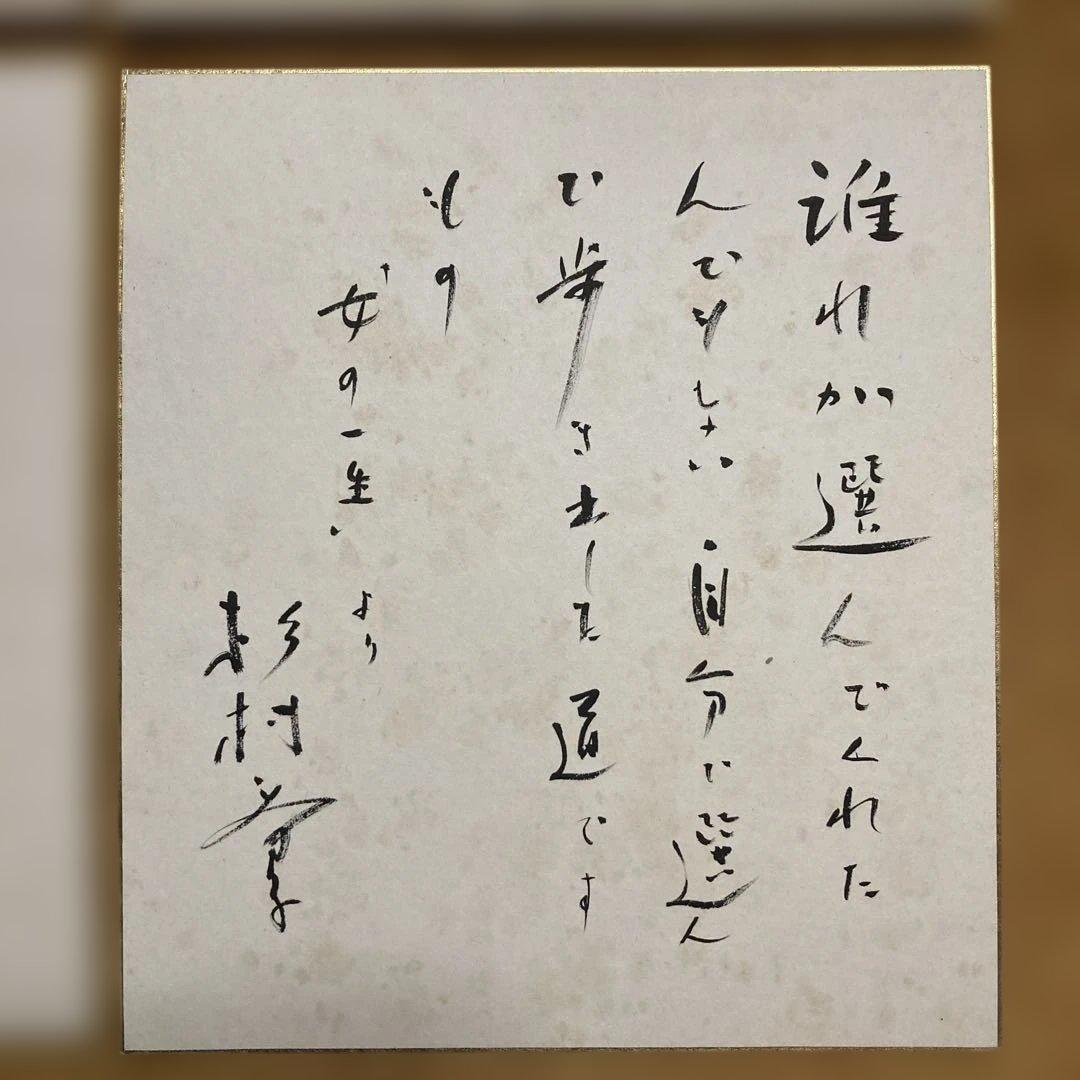 誰れが選んでくれた
んでもない自分で選ん
で歩き出した道です
もの
"女の一生"
より
杉村春子